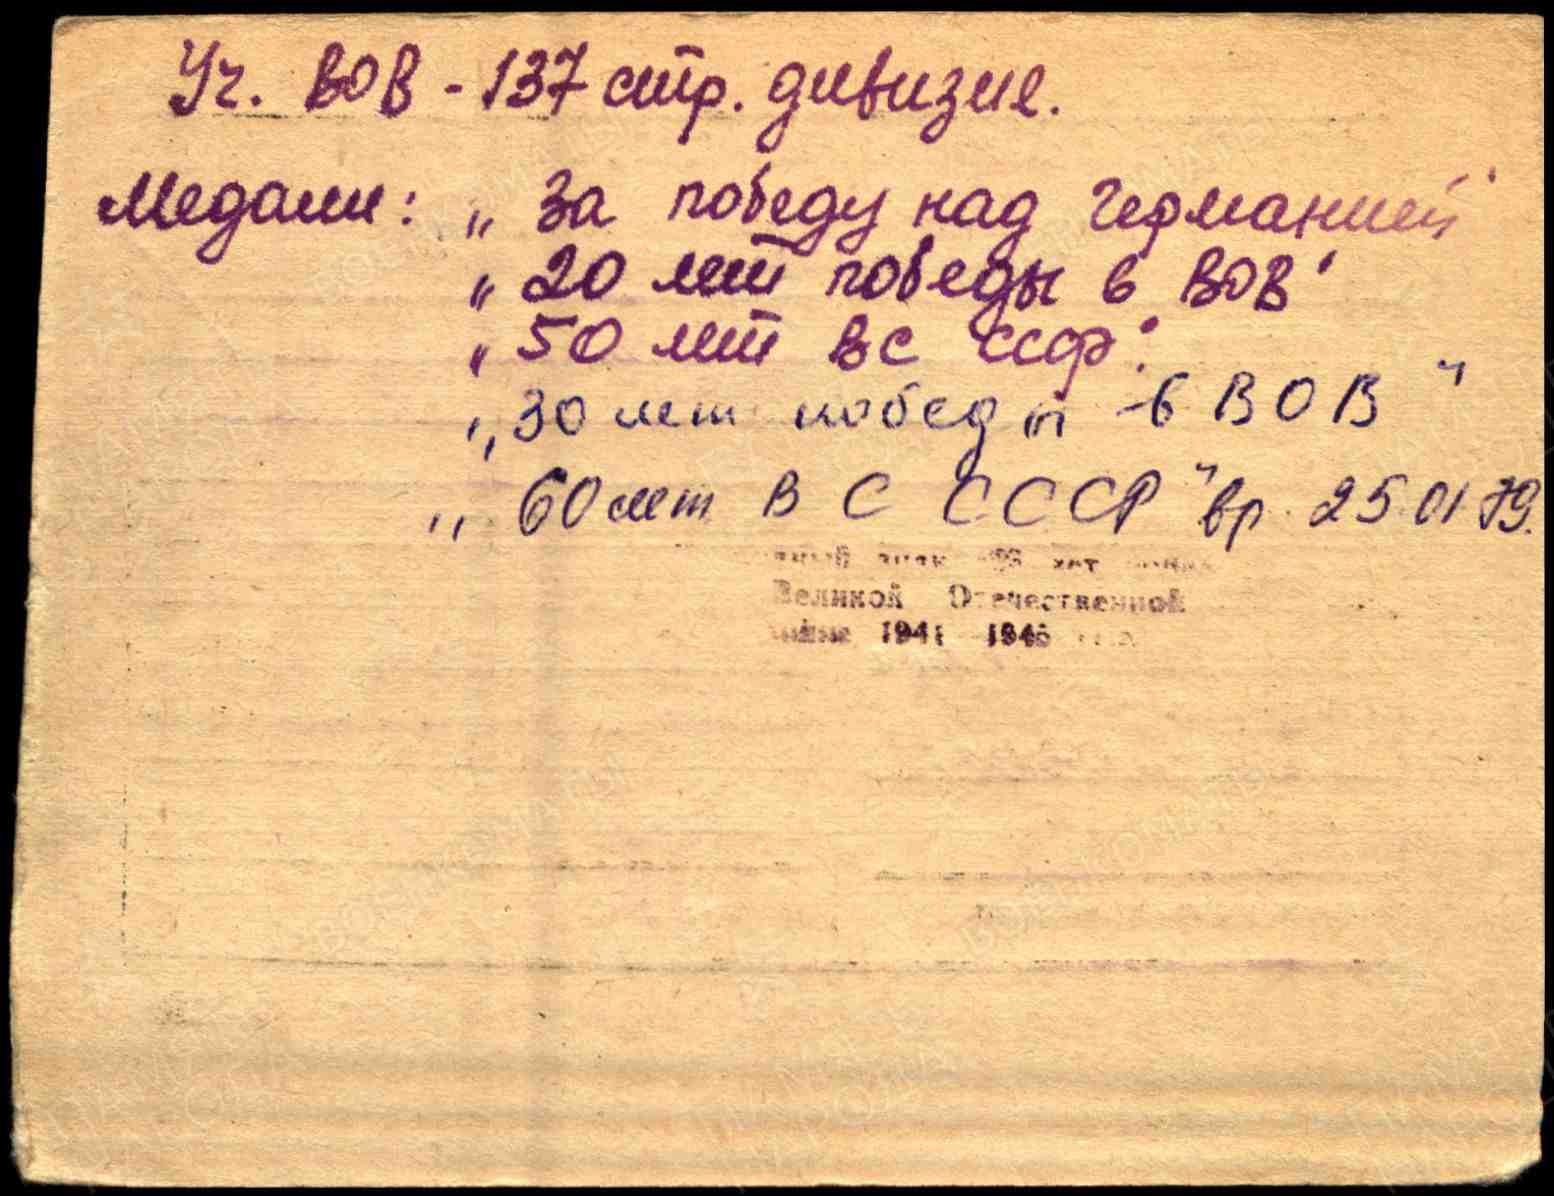 Уч. ВОВ - 137 стр. дивизия.
Медали: „ За победу над Германией"
„ 20 лет победы в ВОВ"
„ 50 лет ВС СССР".
„ 30 лет побед в ВОВ "
„ 60 лет ВС СССР" вр. 25.01.79.
знак лет
Великой Отечественной
войне 1941 1945